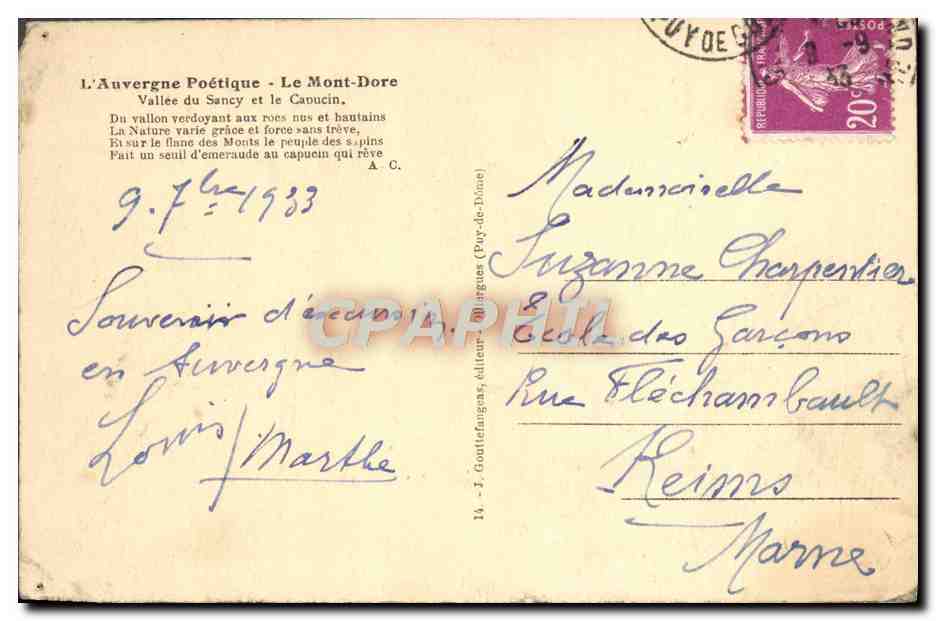 L'Auvergne Poétique - Le Mont-Dore
Vallée du Sancy et le Capucin.
Du vallon verdoyant aux rocs nus et hautains
La Nature varie grâce et force sans trêve,
Et sur le flanc des Monts le peuple des sapins
Fait un seuil d'emeraude au capucin qui rêve
A. C.
9. 7bre 1933
Souvenir d'excurs.
en Auvergne
Louis / Marthe
14. - J. Gouttefangeas, éditeur - Olliergues (Puy-de-Dôme)
PUY DE
REPUBLIQUE FRANÇAISE
POSTES
20c
9 -9
33
Mademoiselle
Suzanne Charpentier
Ecole des Garçons
Rue Fléchambault
Reims
Marne
CPAPHIL